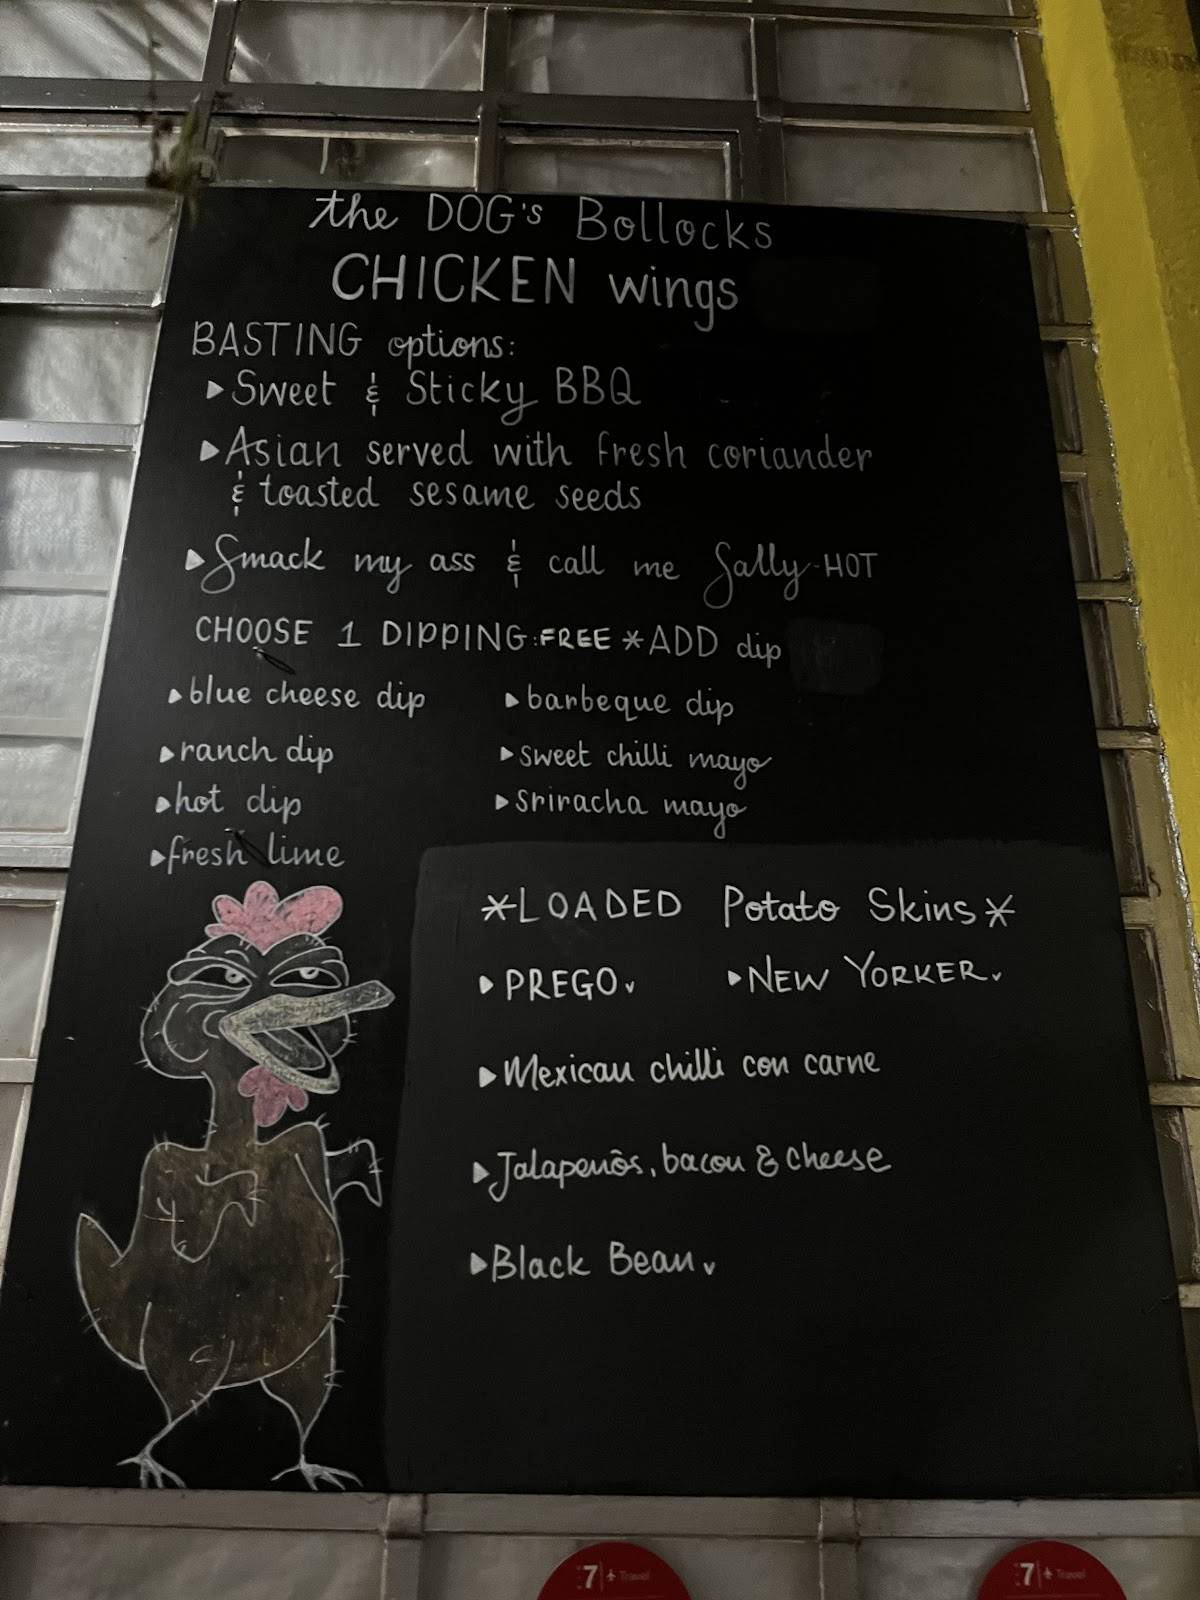 the DOG's Bollocks
CHICKEN wings
BASTING options:
▸Sweet & Sticky BBQ
▸Asian served with fresh coriander
& toasted sesame seeds
▸Smack my ass & call me Sally-HOT
CHOOSE 1 DIPPING:FREE *ADD dip
▸blue cheese dip ▸barbeque dip
▸ranch dip ▸sweet chilli mayo
▸hot dip ▸sriracha mayo
▸fresh lime
*LOADED Potato Skins*
▸PREGO.v ▸NEW YORKER.v
▸Mexican chilli con carne
▸Jalapenõs, bacon & cheese
▸Black Bean.v
:7 Travel :7 Travel